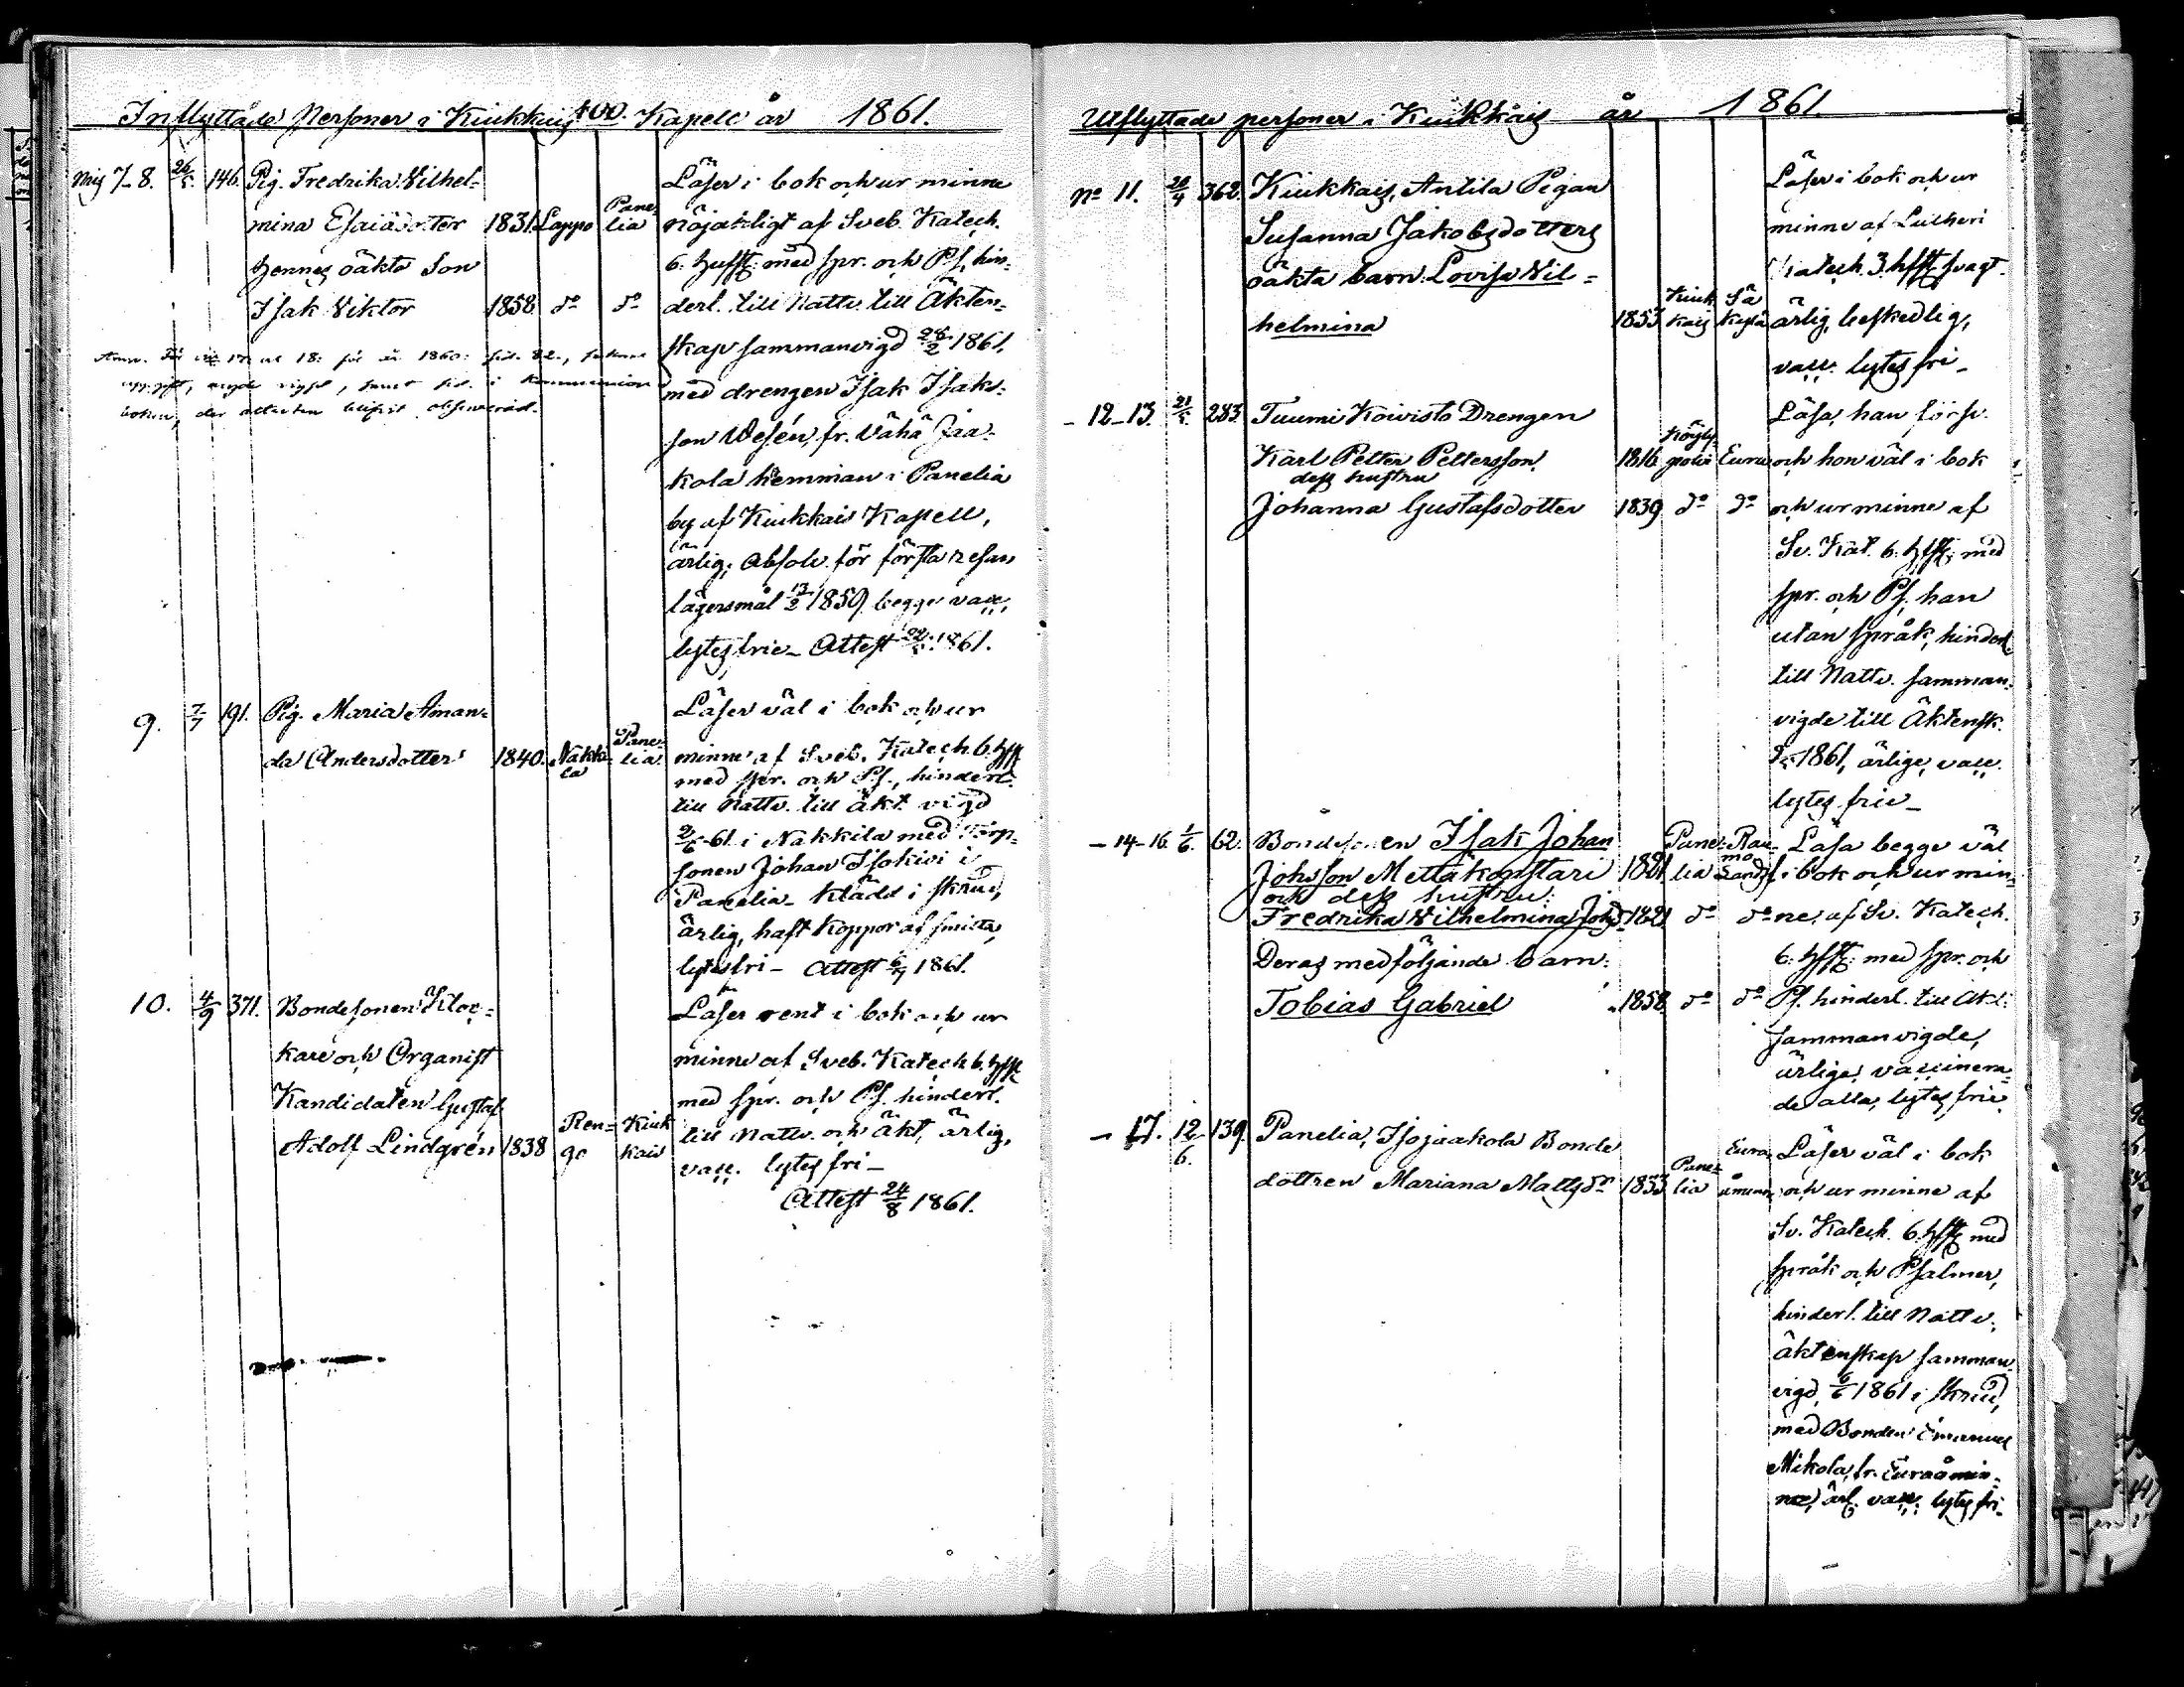 Inflyttade Personer i Kiukkais Kapell år 1861.
100.
Mig 7-8. 26/5. 146. Pig. Fredrika Wilhel-
mina Esaiædotter 1831. Lappo Pane-
lia
hennes oäkta Son
Isak Viktor 1858. do do
Läser i bok och ur minne
nöjaktligt af Sveb. Katech.
6. hufst: med spr. och Ps, hin-
derl. till Nattv. till Äkten-
skap sammanvigd 24/2 1861.
med drengen Isak Isaks-
son Wesén, fr. Vähä Jaa-
kola hemman i Panelia
by af Kiukkais Kapell,
ärlig, Absolv. för första resan
lägersmål 13/2 1859. begge vacc,
lytes frie - Attest 1861.
för år 1860: 
i kommunion
boken, der
9. 7/7 191. Pig. Maria Aman-
da Andersdotter 1840. Nakki-
la Pane-
lia
Läser väl i bok och ur
minne af Sveb. Katech. 6. hfst
med spr. och Ps., hinderl.
till Nattv. till äkt. vigd
2/6-61. i Nakkila med Torp-
sonen Johan Isokivi i
Panelia - Klädd i skrud,
ärlig, haft koppor af smitta,
lytesfri - Attest 6/7 1861.
10. 4/9 371. Bondesonen Kloc-
kare och Organist
Kandidaten Gustaf
Adolf Lindgrén 1838 Ren-
go Kiuk
kais
Läser rent i bok och ur
minne af Sveb. Katech. 6. hfst
med spr. och Ps. hinderl.
till Nattv. och Äkt, ärlig,
vacc. lytes fri -
Attest 24/8 1861.
Utflyttade personer i Kiukkais år 1861.
No 11. 28/4 362. Kiukkais, Antila Pigan
Susanna Jakobsdotters
oäkta barn: Lovisa Wil-
helmina 1853 Kiuk
kais Sä
kylä
Läser i bok och ur
minne af Lutheri
Katech. 3. hfst svagt.
ärlig, beskedlig,
vacc. lytes fri -
- 12-13. 21/5. 283. Tuumi Koivisto Drengen
Karl Petter Pettersson 1816 Köyly-
polvi Eura
dess hustru
Johanna Gustafsdotter 1839 do do
Läsa, han försv.
och hon väl i bok
och ur minne af
Sv. Kat. 6. hfst: med
spr. och Ps. han
utan språk, hinderl.
till Nattv. samman-
vigde till Äktensk.
1861, ärlige, vacc.
lytes frie -
- 14-16. 1/6. 62. Bondesonen Isak Johan
Johsson Mettäkonstari 1821 Pane-
lia Rau-
mo
Landsf.
och dess hustru:
Fredrika Wilhelmina Johsdr 1821 do do
Deras medföljande barn:
Tobias Gabriel 1858 do do
Läsa begge väl
i bok och ur min-
ne, af Sv. Katech.
6. hfst: med spr. och
Ps. hinderl. till Äkt:
sammanvigde,
ärlige, vaccinera-
de alla, lytes frie.
- 17. 12/6. 139. Panelia, Isojaakola Bonde
dottren Mariana Mattsdr 1833 Pane-
lia Eura-
åminne
Läser väl i bok
och ur minne af
Sv. Katech. 6. hfst med
språk och Psalmer,
hinderl. till Nattv.
äktenskap samman-
vigd 6/6 1861 i skrud,
med Bonden Emanuel
Mikola, fr. Euraåmin-
ne, ärl. vacc. lytes fri-